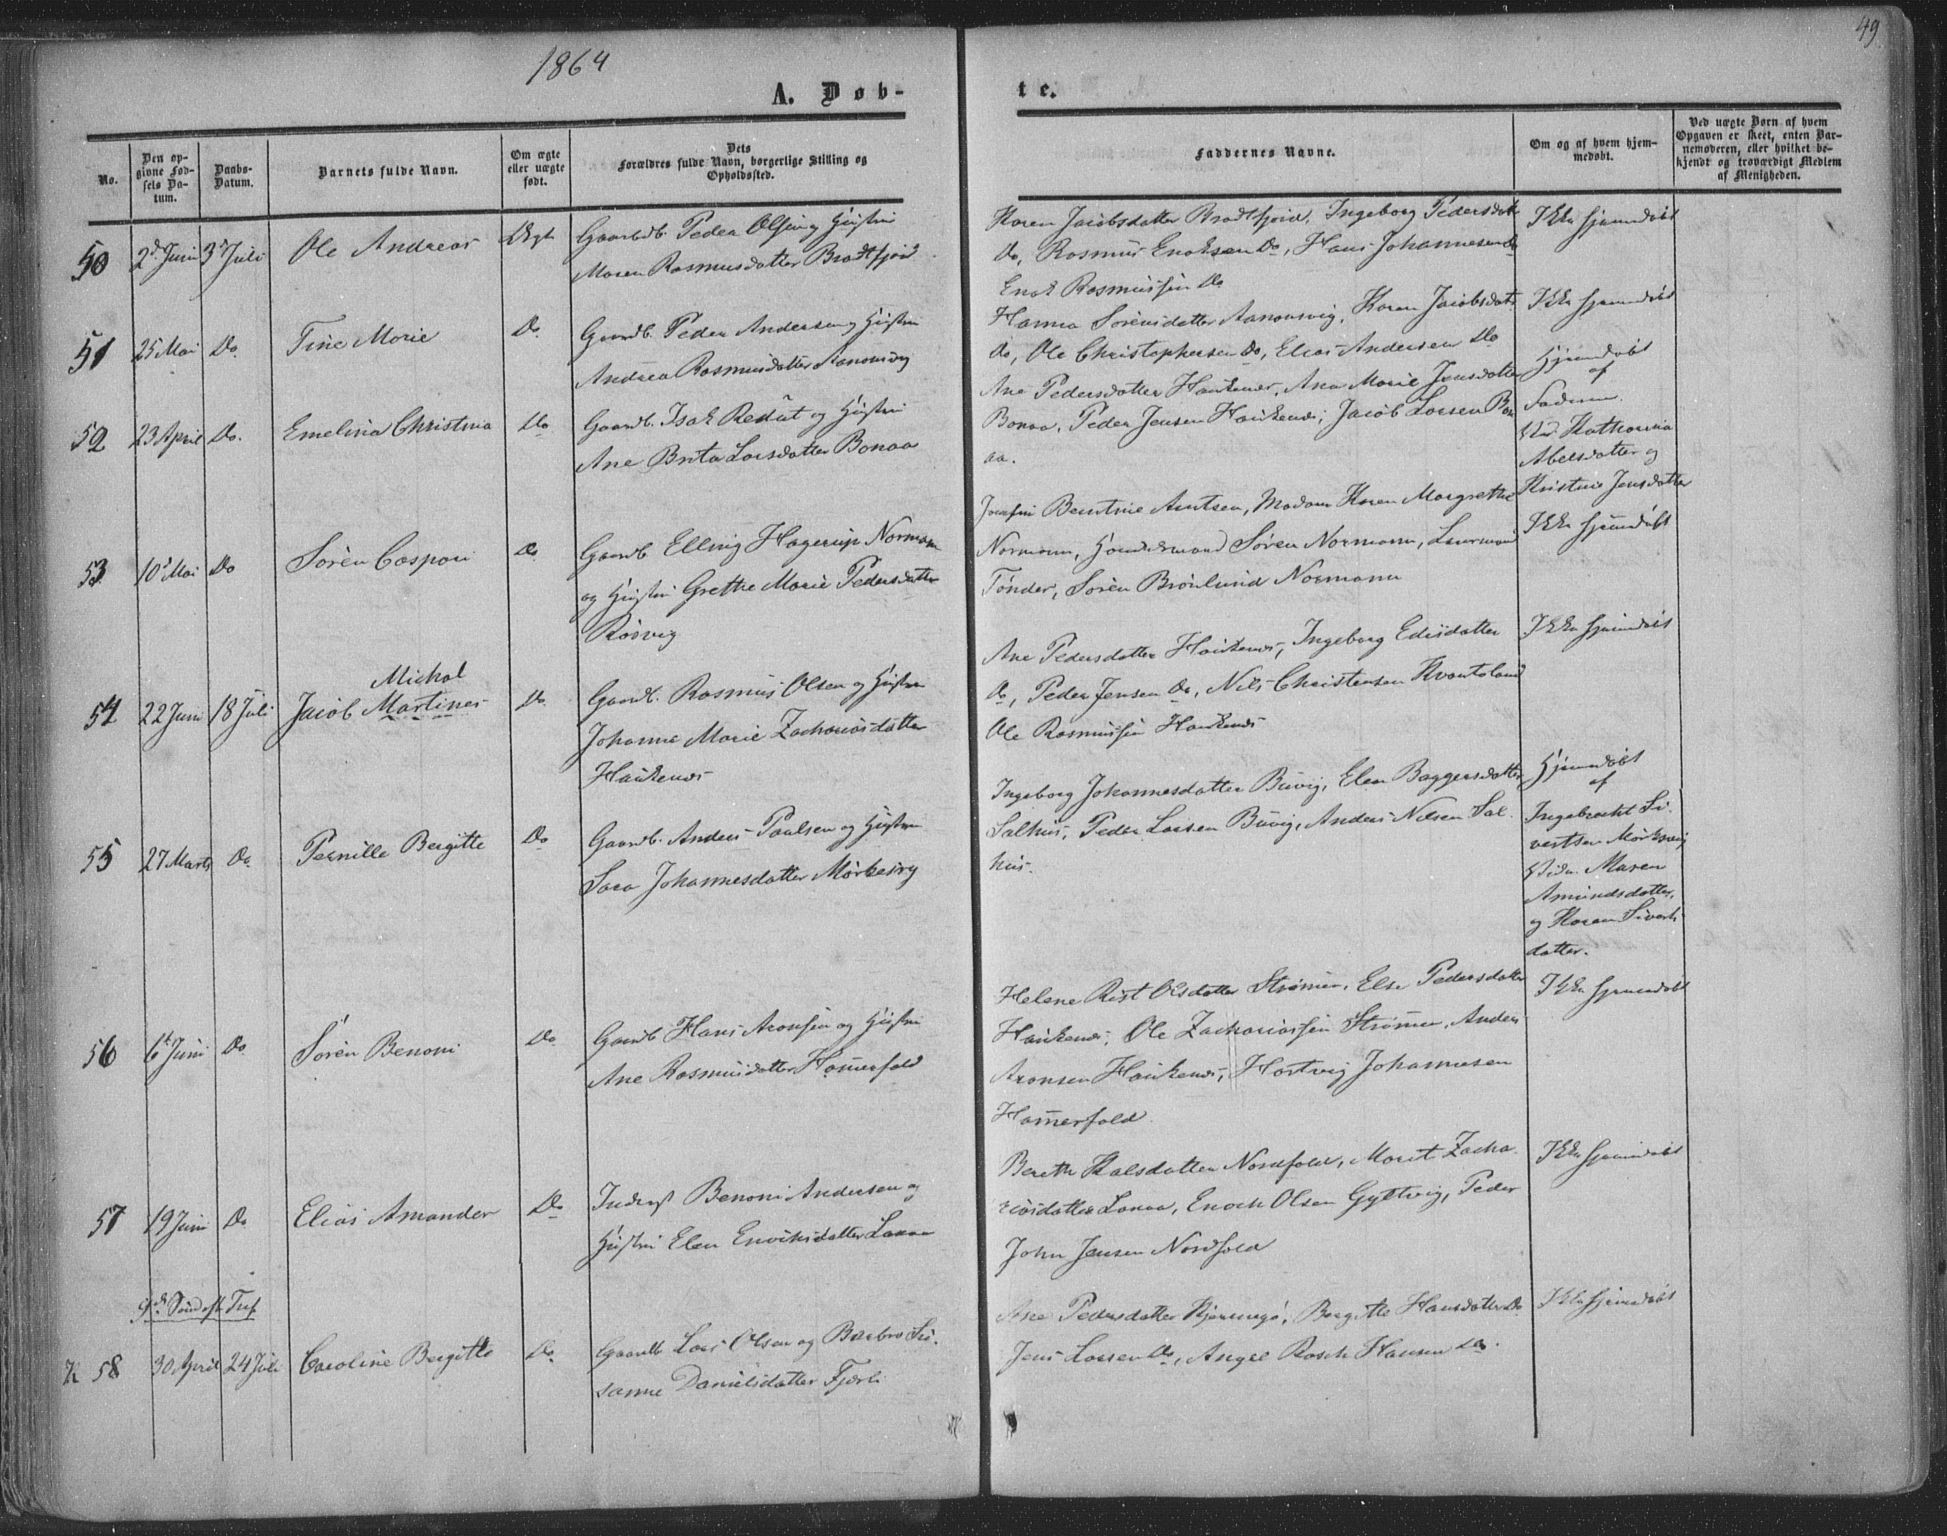 1864
49
A. Døb-
te.
No.
Den op-
givne Fød-
sels Da-
tum.
Daabs-
Datum.
Barnets fulde Navn.
Om ægte
eller uægte
født.
Dets
Forældres fulde Navn, borgerlige Stilling og
Opholdssted.
Faddernes Navne.
Om og af hvem hjem-
medøbt.
Ved uægte Børn af hvem
Opgaven er skeet, enten Bar-
nemoderen, eller hvilket be-
kjendt og troværdigt Medlem
af Menigheden.
50 2d Juni 3d Juli Ole Andreas Ægte Gaardb. Peder Olsen og Hustru
Maren Rasmusdatter Bradtfjord
Karen Jacobsdatter Bradtfjord, Ingeborg Pedersdat
Do, Rasmus Enoksen Do, Hans Johannesen Do
Enok Rasmussen Do
Ikke hjemdøbt
51 25 Mai Do Tine Marie Do Gaardb. Peder Andersen og Hustru
Andrea Rasmusdatter Aanonsvig
Hanna Sørensdatter Aanonsvig, Karen Jacobsdatr
Do, Ole Christophersen Do, Elias Andersen Do
Ikke hjemdøbt
52 23 April Do. Emelina Christina Do Gaardb. Isak Redut og Hustru
Ane Brita Larsdatter Bonaa
Ane Pedersdatter Haukenes, Ana Marie Jensdatter
Bonaa, Peder Jensen Haukenes, Jacob Larsen Bon
aa.
Hjemdøbt
af
Faderen
Vid. Katharina
Abelsdatter og
Kristine Jensdatter
53 10d Mai Do Søren Caspari Do Gaardb Elling Hagerup Normann
og Hustru Grethe Marie Pedersdatter
Røsvig
Josefine Berntine Arntsen, Madam Karen Margrethe
Normann, Handelsmand Søren Normann, Lensmand
Tønder, Søren Brönlund Normann
Ikke hjemdøbt
54 22 Juni 18 Juli Jacob Martines Do. Gaardb. Rasmus Olsen og Hustru
Michal
Johanna Marie Zachariasdatter
Haukenes
Ane Pedersdatter Haukenes, Ingeborg Edisdatter
Do, Peder Jensen Do, Nils Christensen Kvantoland
Ole Rasmussen Haukenes
Ikke hjemdøbt
55 27 Marts Do. Pernille Bergitte Do Gaardb. Anders Paulsen og Hustru
Sara Johannesdatter Mørkesvig
Ingeborg Johannesdatter Buvig, Elen Baggersdatter
Salhus, Peder Larsen Buvig, Anders Nilsen Sal
hus.
Hjemdøbt
af
Ingebrecht Si
vertsen Mørksvig
Vidn. Maren
Amundsdatter,
og Karen Siverts
datter.
56 6t Juni Do Søren Benoni Do Gaardb Hans Aronsen og Hustru
Ane Rasmusdatter Hammerfald
Helene Rist Olsdatter Strømen, Else Pedersdatter
Haukenes, Ole Zachariassen Strømen, Anders
Aronsen Haukenes, Hartvig Johannesen
Hammerfald.
Ikke hjemdøbt
57 19 Juni Do Elias Amandur Do Inderst Benoni Andersen og
Hustru Elen Enochsdatter Lanaa
Bereth Halsdatter Nordfold, Marit Zacha
riasdatter Lanaa, Enoch Olsen Gyltvig, Peder
John Jensen Nordfold
Ikke hjemdøbt
9de Sønd eft Tref
58 30 April 24 Juli Caroline Bergitte Do Gaardb Lars Olsen og Barbro Su
sanne Danielsdatter Fjærli
Ane Pedersdatter Kjerringø, Bergitte Hansdatter Do
Jens Larsen Do, Angel Rosch Hansen Do.
Ikke hjemdøbt